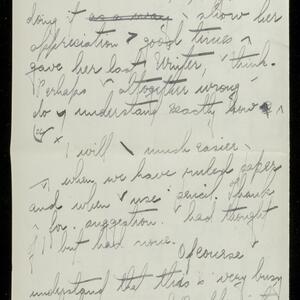 doing it as a way \ show her
appreciation > good times \
gave her last Winter, \ think.
Perhaps \ altogether wrong \
do \ understand exactly how
\ I will \ much easier \
\, when we have ruled paper
and when \ use \ pencil. Thank
\ for \ suggestion. \ had thought
\ but had none.
Of course
understand that this is \ very busy